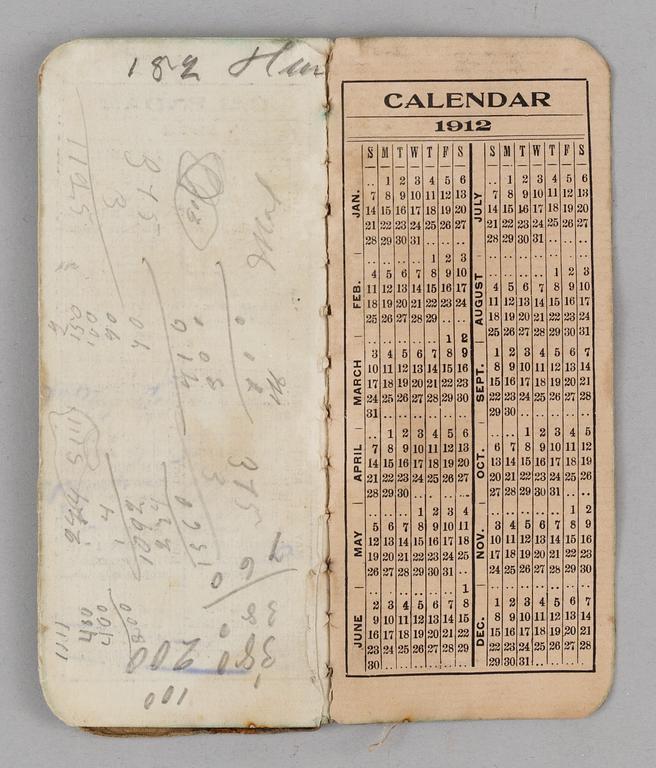 182
375
3
1125
375
3
200
380
100
800
400
480
1111
1115
CALENDAR
1912
S M T W T F S
JAN.
.. 1 2 3 4 5 6
7 8 9 10 11 12 13
14 15 16 17 18 19 20
21 22 23 24 25 26 27
28 29 30 31 .. .. ..
FEB.
.. .. .. .. 1 2 3
4 5 6 7 8 9 10
11 12 13 14 15 16 17
18 19 20 21 22 23 24
25 26 27 28 29 .. ..
MARCH
.. .. .. .. .. 1 2
3 4 5 6 7 8 9
10 11 12 13 14 15 16
17 18 19 20 21 22 23
24 25 26 27 28 29 30
31 .. .. .. .. .. ..
APRIL
.. 1 2 3 4 5 6
7 8 9 10 11 12 13
14 15 16 17 18 19 20
21 22 23 24 25 26 27
28 29 30 .. .. .. ..
MAY
.. .. .. 1 2 3 4
5 6 7 8 9 10 11
12 13 14 15 16 17 18
19 20 21 22 23 24 25
26 27 28 29 30 31 ..
JUNE
.. .. .. .. .. .. 1
2 3 4 5 6 7 8
9 10 11 12 13 14 15
16 17 18 19 20 21 22
23 24 25 26 27 28 29
30 .. .. .. .. .. ..
S M T W T F S
JULY
.. 1 2 3 4 5 6
7 8 9 10 11 12 13
14 15 16 17 18 19 20
21 22 23 24 25 26 27
28 29 30 31 .. .. ..
AUGUST
.. .. .. .. 1 2 3
4 5 6 7 8 9 10
11 12 13 14 15 16 17
18 19 20 21 22 23 24
25 26 27 28 29 30 31
SEPT.
1 2 3 4 5 6 7
8 9 10 11 12 13 14
15 16 17 18 19 20 21
22 23 24 25 26 27 28
29 30 .. .. .. .. ..
OCT.
.. .. 1 2 3 4 5
6 7 8 9 10 11 12
13 14 15 16 17 18 19
20 21 22 23 24 25 26
27 28 29 30 31 .. ..
NOV.
.. .. .. .. .. 1 2
3 4 5 6 7 8 9
10 11 12 13 14 15 16
17 18 19 20 21 22 23
24 25 26 27 28 29 30
DEC.
1 2 3 4 5 6 7
8 9 10 11 12 13 14
15 16 17 18 19 20 21
22 23 24 25 26 27 28
29 30 31 .. .. .. ..